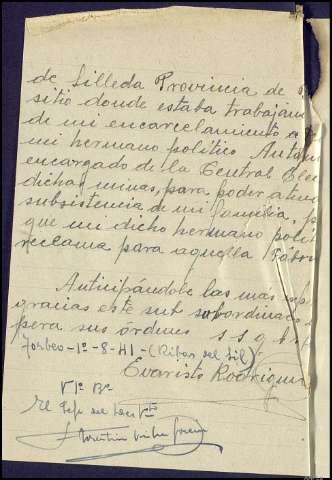 de Silleda Provincia de
sitio donde estaba trabajan
de mi encarcelamiento a
mi hermano politico Anto
encargado de la Central Elec
dichas minas, para poder aten
subsistencia de mi familia, p
que mi dicho hermano polit
reclama para aquella Fábri
Anticipándole las más exp
gracias este su subordinado
pera sus órdenes s s q b s
Torbeo-1º-8-41-(Ribas del Sil)
Evaristo Rodriguez
Vº Bº
El Jefe del Destº